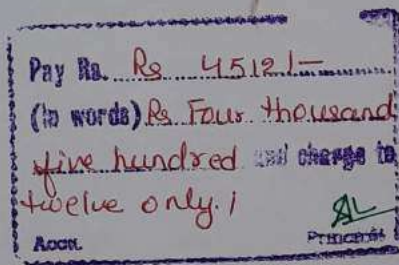 Pay Rs. Rs 4512/-
(in words) Rs Four thousand
five hundred and charge to
twelve only./
Acctt. Principal